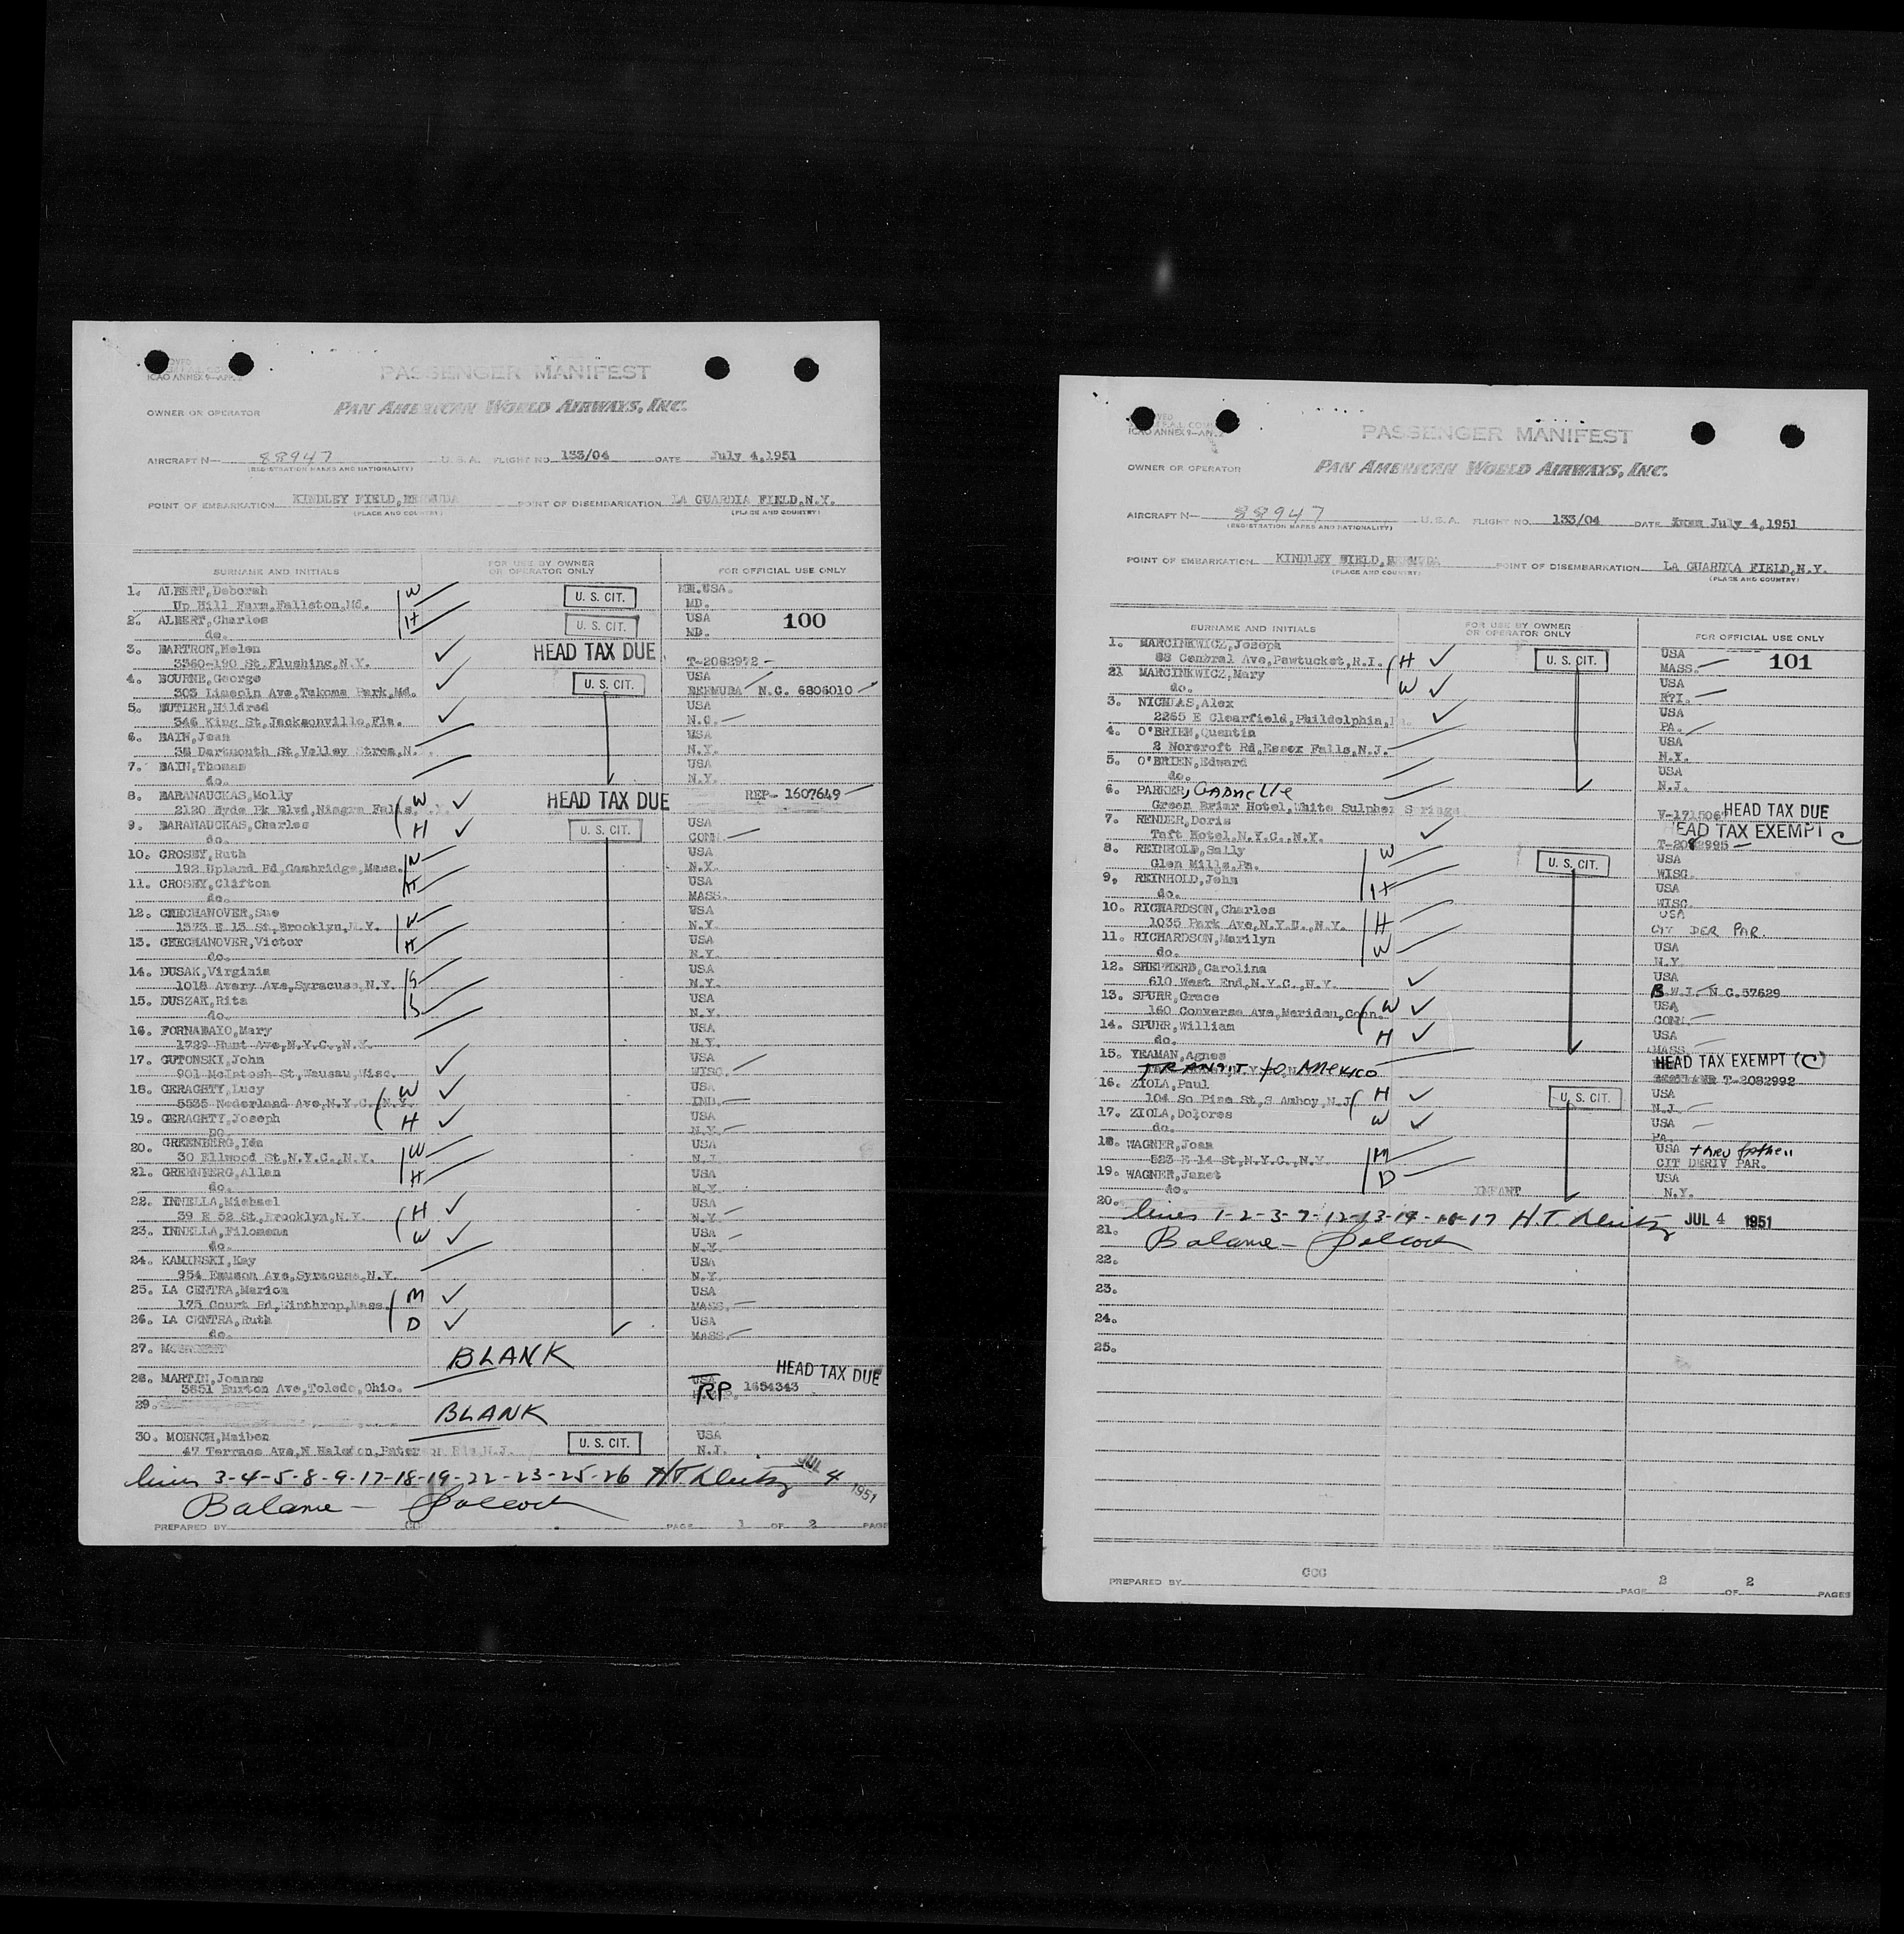 ICAO ANNEX 9—APP. 2
PASSENGER MANIFEST
OWNER OR OPERATOR PAN AMERICAN WORLD AIRWAYS, INC.
AIRCRAFT N— 88947 U. S. A. FLIGHT NO. 133/04 DATE July 4,1951
(REGISTRATION MARKS AND NATIONALITY)
POINT OF EMBARKATION KINDLEY FIELD,BERMUDA POINT OF DISEMBARKATION LA GUARDIA FIELD,N.Y.
(PLACE AND COUNTRY) (PLACE AND COUNTRY)
SURNAME AND INITIALS FOR USE BY OWNER OR OPERATOR ONLY FOR OFFICIAL USE ONLY
1. ALBERT,Deborah W U. S. CIT. USA.
Up Hill Farm,Fallston,Md. MD.
2. ALBERT,Charles H U. S. CIT. USA 100
do. MD.
3. BARTRON,Helen ✓ HEAD TAX DUE
3360-190 St.Flushing,N.Y. T-2082972 -
4. BOURNE,George ✓ U. S. CIT. USA
303 Lincoln Ave,Takoma Park,Md. BERMUDA N.C. 6806010
5. BUTLER,Hildred ✓ USA
346 King St,Jacksonville,Fla. N.C.
6. BAIN,Jean USA
Dartmouth St,Valley Strea,N. N.Y.
7. BAIN,Thomas USA
do. N.Y.
8. BARANAUCKAS,Molly W ✓ HEAD TAX DUE REP- 1607649
2120 Hyde Pk Blvd,Niagra Falls,
9. BARANAUCKAS,Charles H ✓ U. S. CIT. USA
do. CONN.
10. CROSBY,Ruth W USA
192 Upland Rd,Cambridge,Mass. N.Y.
11. CROSBY,Clifton H USA
do. MASS.
12. CZECHANOVER,Sue W USA
1373 E 13 St,Brooklyn,N.Y. N.Y.
13. CZECHANOVER,Victor H USA
do. N.Y.
14. DUSAK,Virginia S USA
1018 Avery Ave,Syracuse,N.Y. N.Y.
15. DUSZAK,Rita S USA
do. N.Y.
16. FORNABAIO,Mary USA
1729 Hunt Ave,N.Y.C.,N.Y. N.Y.
17. GUTONSKI,John ✓ USA
901 McIntosh St,Wausau,Wisc. WISC.
18. GERAGHTY,Lucy W ✓ USA
5535 Nederland Ave,N.Y.C.,N.Y. IND.
19. GERAGHTY,Joseph H ✓ USA
DO. N.Y.
20. GREENBERG,Ida W USA
30 Ellwood St,N.Y.C.,N.Y. N.J.
21. GREENBERG,Allan H USA
do. N.Y.
22. INNELLA,Michael H ✓ USA
39 E 52 St,Brooklyn,N.Y. N.Y.
23. INNELLA,Filomena W ✓ USA
do. N.Y.
24. KAMINSKI,Kay USA
954 Emuson Ave,Syracuse,N.Y. N.Y.
25. LA CENTRA,Marion M ✓ USA
175 Court Rd,Winthrop,Mass. MASS.
26. LA CENTRA,Ruth D ✓ USA
do. MASS.
27. BLANK
28. MARTIN,Joanne HEAD TAX DUE
3851 Burton Ave,Toledo,Ohio. RP 1654343
29. BLANK
30. MOENCH,Maiben U. S. CIT. USA
47 Terrace Ave,N Haledon, N.J. N.J.
lines 3-4-5-8-9-17-18-19-22-23-25-26 JUL 4 1951
Balance —
PREPARED BY PAGE 1 OF 2 PAGES
ICAO ANNEX 9—APP. 2
PASSENGER MANIFEST
OWNER OR OPERATOR PAN AMERICAN WORLD AIRWAYS, INC.
AIRCRAFT N— 88947 U. S. A. FLIGHT NO. 133/04 DATE July 4,1951
(REGISTRATION MARKS AND NATIONALITY)
POINT OF EMBARKATION KINDLEY FIELD,BERMUDA POINT OF DISEMBARKATION LA GUARDIA FIELD,N.Y.
(PLACE AND COUNTRY) (PLACE AND COUNTRY)
SURNAME AND INITIALS FOR USE BY OWNER OR OPERATOR ONLY FOR OFFICIAL USE ONLY
1. MARCINKWICZ,Joseph U. S. CIT. USA 101
88 Central Ave,Pawtucket,R.I. H ✓ MASS.
2. MARCINKWICZ,Mary USA
do. W ✓ R?I.
3. NICHLAS,Alex USA
2265 E Clearfield,Phildelphia, ✓ PA.
4. O'BRIEN,Quentin USA
2 Norcroft Rd,Essex Falls,N.J. N.Y.
5. O'BRIEN,Edward USA
do. N.J.
6. PARKER, GABRIELLE
Green Briar Hotel,White Sulpher Springs HEAD TAX DUE
7. RENDER,Doris HEAD TAX EXEMPT C
Taft Hotel,N.Y.C.,N.Y. ✓ T-2082995
8. REINHOLD,Sally W U. S. CIT. USA
Glen Mills,Pa. WISC.
9. REINHOLD,John H USA
do. WISC.
10. RICHARDSON,Charles H USA
1035 Park Ave,N.Y.U.,N.Y. CIT DER PAR.
11. RICHARDSON,Marilyn W USA
do. N.Y.
12. SHEPHERD,Carolina USA
610 West End,N.Y.C.,N.Y. ✓ B.W.I. N C.57629
13. SPURR,Grace W ✓ USA
160 Converse Ave,Meriden,Conn. CONN.
14. SPURR,William H ✓ USA
do. MASS.
15. YEAMAN,Agnes HEAD TAX EXEMPT (C)
TRANSIT to MEXICO T-2082992
16. ZIOLA,Paul H ✓ U. S. CIT. USA
104 So Pine St,S Amboy,N.J. N.J.
17. ZIOLA,Dolores W ✓ USA
do. PA.
18. WAGNER,Joan M USA thru father
523 E 14 St,N.Y.C.,N.Y. CIT DERIV PAR.
19. WAGNER,Janet D USA
do. INFANT N.Y.
20. lines 1-2-3-7-12-13-14-16-17 JUL 4 1951
21. Balance —
22.
23.
24.
25.
PREPARED BY CCC PAGE 2 OF 2 PAGES